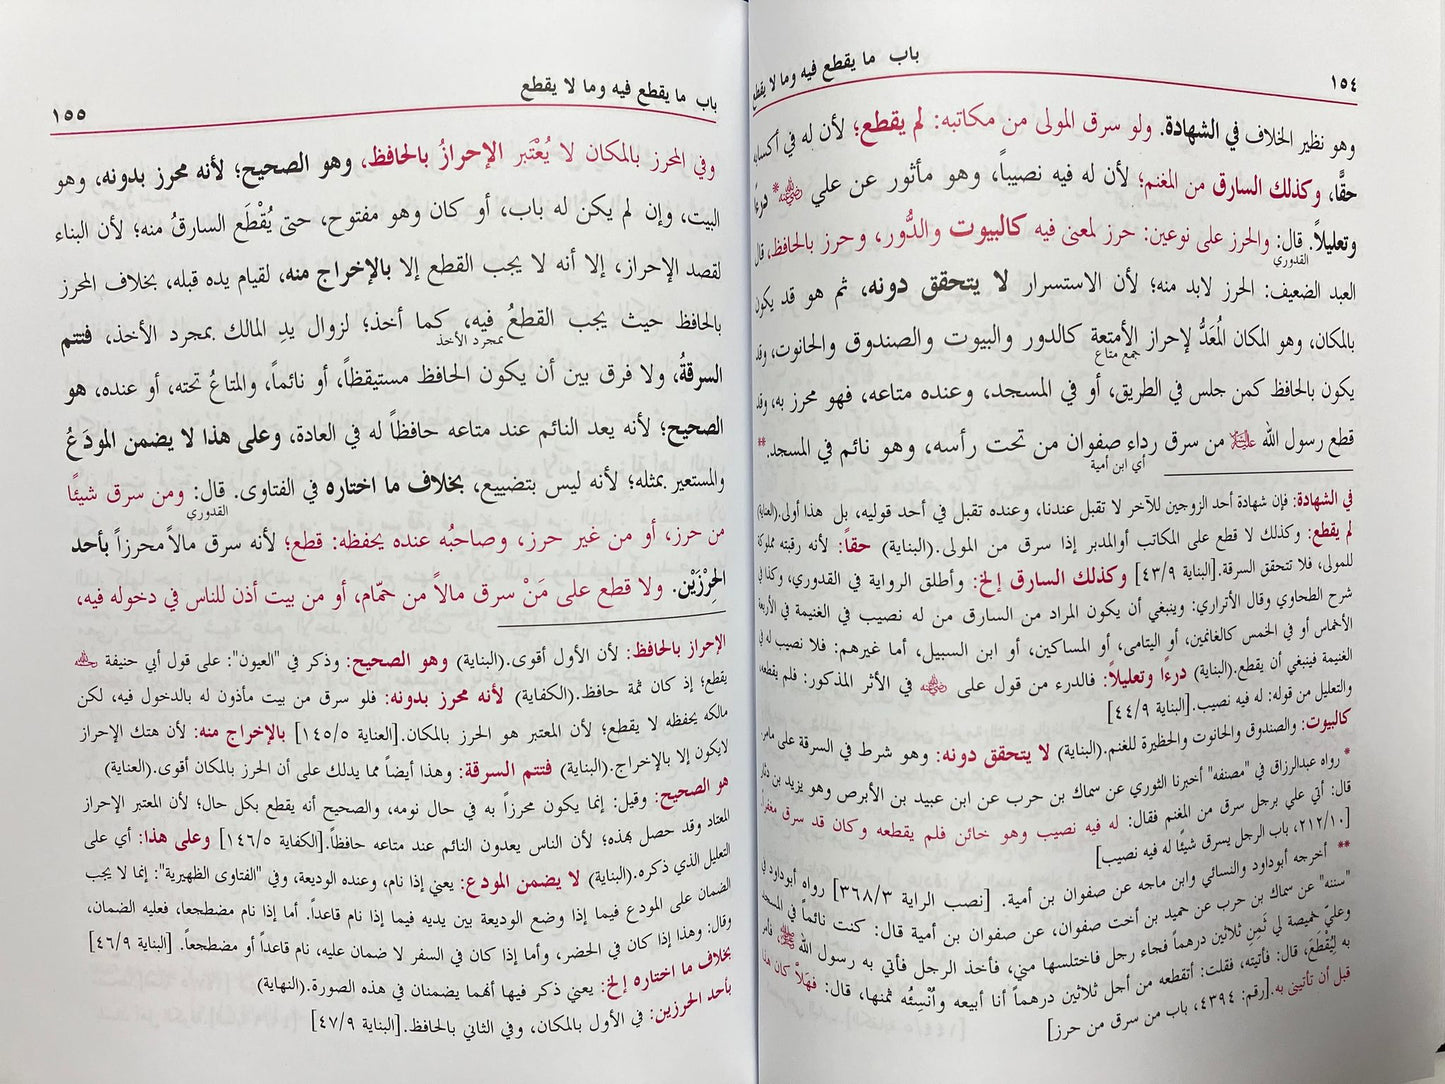 ١٥٤
باب ما يقطع فيه وما لا يقطع
وهو نظير الخلاف في الشهادة. ولو سرق المولى من مكاتبه: لم يقطع؛ لأن له في أكسابه
حقًّا، وكذلك السارق من المغنم؛ لأن له فيه نصيباً، وهو مأثور عن علي ﷺ* درءًا
وتعليلاً. قال: والحرز على نوعين: حرز لمعنى فيه كالبيوت والدُّور، وحرز بالحافظ، قال
القدوري
العبد الضعيف: الحرز لابد منه؛ لأن الاستسرار لا يتحقق دونه، ثم هو قد يكون
بالمكان، وهو المكان المُعَدُّ لإحراز الأمتعة كالدور والبيوت والصندوق والحانوت، وقد
جمع متاع
يكون بالحافظ كمن جلس في الطريق، أو في المسجد، وعنده متاعه، فهو محرز به، وقد
قطع رسول الله ﷺ من سرق رداء صفوان من تحت رأسه، وهو نائم في المسجد.**
أي ابن أمية
في الشهادة: فإن شهادة أحد الزوجين للآخر لا تقبل عندنا، وعنده تقبل في أحد قوليه، بل هذا أولى.(العناية)
لم يقطع: وكذلك لا قطع على المكاتب أوالمدبر إذا سرق من المولى.(البناية) حقاً: لأنه رقبته مملوكة
للمولى، فلا تتحقق السرقة.[البناية ٤٣/٩] وكذلك السارق إلخ: وأطلق الرواية في القدوري، وكذا في
شرح الطحاوي وقال الأتراري: وينبغي أن يكون المراد من السارق من له نصيب في الغنيمة في الأربعة
الأخماس أو في الخمس كالغانمين، أو اليتامى، أو المساكين، أو ابن السبيل، أما غيرهم: فلا نصيب له في
الغنيمة فينبغي أن يقطع.(البناية) درءًا وتعليلاً: فالدرء من قول على ﷺ في الأثر المذكور: فلم يقطعه،
والتعليل من قوله: له فيه نصيب.[البناية ٤٤/٩]
كالبيوت: والصندوق والحانوت والحظيرة للغنم.(البناية) لا يتحقق دونه: وهو شرط في السرقة على مامر.
* رواه عبدالرزاق في "مصنفه" أخبرنا الثوري عن سماك بن حرب عن ابن عبيد بن الأبرص وهو يزيد بن دثار
قال: أتي علي برجل سرق من المغنم فقال: له فيه نصيب وهو خائن فلم يقطعه وكان قد سرق مغفراً
[٢١٢/١٠، باب الرجل يسرق شيئًا له فيه نصيب]
** أخرجه أبوداود والنسائي وابن ماجه عن صفوان بن أمية. [نصب الراية ٣٦٨/٣] رواه أبوداود في
"سننه" عن سماك بن حرب عن حميد بن أخت صفوان، عن صفوان بن أمية قال: كنت نائماً في المسجد
وعليّ خميصة لي ثَمِنِ ثلاثين درهماً فجاء رجل فاختلسها مني، فأخذ الرجل فأتي به رسول الله ﷺ فأمر
به لِيُقْطَعَ، قال: فأتيته، فقلت: أتقطعه من أجل ثلاثين درهماً أنا أبيعه وأُنْسِئُه ثمنها، قال: فَهَلاَّ كان هذا
قبل أن تأتيني به.[رقم: ٤٣٩٤، باب من سرق من حرز]
باب ما يقطع فيه وما لا يقطع
١٥٥
وفي المحرز بالمكان لا يُعْتَبر الإحرازُ بالحافظ، وهو الصحيح؛ لأنه محرز بدونه، وهو
البيت، وإن لم يكن له باب، أو كان وهو مفتوح، حتى يُقْطَع السارقُ منه؛ لأن البناء
لقصد الإحراز، إلا أنه لا يجب القطع إلا بالإخراج منه، لقيام يده قبله، بخلاف المحرز
بالحافظ حيث يجب القطعُ فيه، كما أخذ؛ لزوال يدِ المالك بمجرد الأخذ، فتتم
بمجرد الأخذ
السرقةُ، ولا فرق بين أن يكون الحافظ مستيقظاً، أو نائماً، والمتاعُ تحته، أو عنده، هو
الصحيح؛ لأنه يعد النائم عند متاعه حافظاً له في العادة، وعلى هذا لا يضمن المودَعُ
والمستعير بمثله؛ لأنه ليس بتضييع، بخلاف ما اختاره في الفتاوى. قال: ومن سرق شيئًا
القدوري
من حرز، أو من غير حرز، وصاحبُه عنده يحفظه: قطع؛ لأنه سرق مالاً محرزاً بأحد
الحِرْزَيْن. ولا قطع على مَنْ سرق مالاً من حمّام، أو من بيت أذن للناس في دخوله فيه،
الإحراز بالحافظ: لأن الأول أقوى.(البناية) وهو الصحيح: وذكر في "العيون": على قول أبي حنيفة ﷺ
يقطع؛ إذ كان ثمة حافظ.(الكفاية) لأنه محرز بدونه: فلو سرق من بيت مأذون له بالدخول فيه، لكن
مالكه يحفظه لا يقطع؛ لأن المعتبر هو الحرز بالمكان.[العناية ١٤٥/٥] بالإخراج منه: لأن هتك الإحراز
لايكون إلا بالإخراج.(البناية) فتتم السرقة: وهذا أيضاً مما يدلك على أن الحرز بالمكان أقوى.(العناية)
هو الصحيح: وقيل: إنما يكون محرزاً به في حال نومه، والصحيح أنه يقطع بكل حال؛ لأن المعتبر الإحراز
المعتاد وقد حصل بهذه؛ لأن الناس يعدون النائم عند متاعه حافظاً.[الكفاية ١٤٦/٥] وعلى هذا: أي على
التعليل الذي ذكره.(البناية) لا يضمن المودع: يعني إذا نام، وعنده الوديعة، وفي "الفتاوى الظهيرية": إنما لا يجب
الضمان على المودع فيما إذا وضع الوديعة بين يديه فيما إذا نام قاعداً. أما إذا نام مضطجعا، فعليه الضمان،
وقال: وهذا إذا كان في الحضر، وأما إذا كان في السفر لا ضمان عليه، نام قاعداً أو مضطجعاً. [البناية ٤٦/٩]
بخلاف ما اختاره إلخ: يعني ذكر فيها أنهما يضمنان في هذه الصورة.(النهاية)
بأحد الحرزين: في الأول بالمكان، وفي الثاني بالحافظ.[البناية ٤٧/٩]